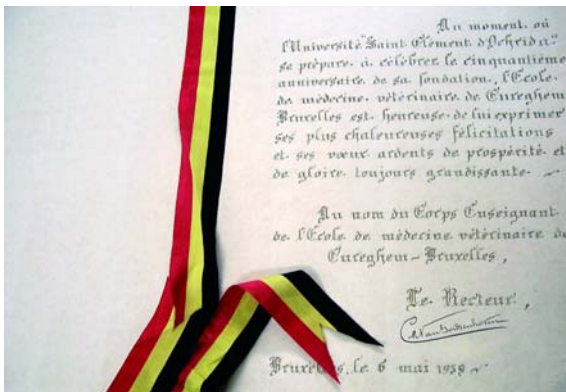 Au moment où
l'Université "Saint Clément d'Ochrida"
se prépare à célébrer le cinquantième
anniversaire de sa fondation, l'École
de médecine vétérinaire de Cureghem
Bruxelles est heureuse de lui exprimer
ses plus chaleureuses félicitations
et ses vœux ardents de prospérité et
de gloire toujours grandissante.
Au nom du Corps Enseignant
de l'École de médecine vétérinaire de
Cureghem-Bruxelles,
Le Recteur,
Bruxelles, le 6 mai 1938